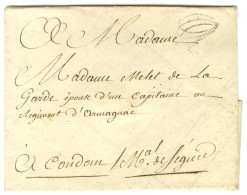 A Madame
Madame Melet de La
Garde épouse d'un Capitaine au
Regiment d'Armagnac
A Condom
M.al de Ségur